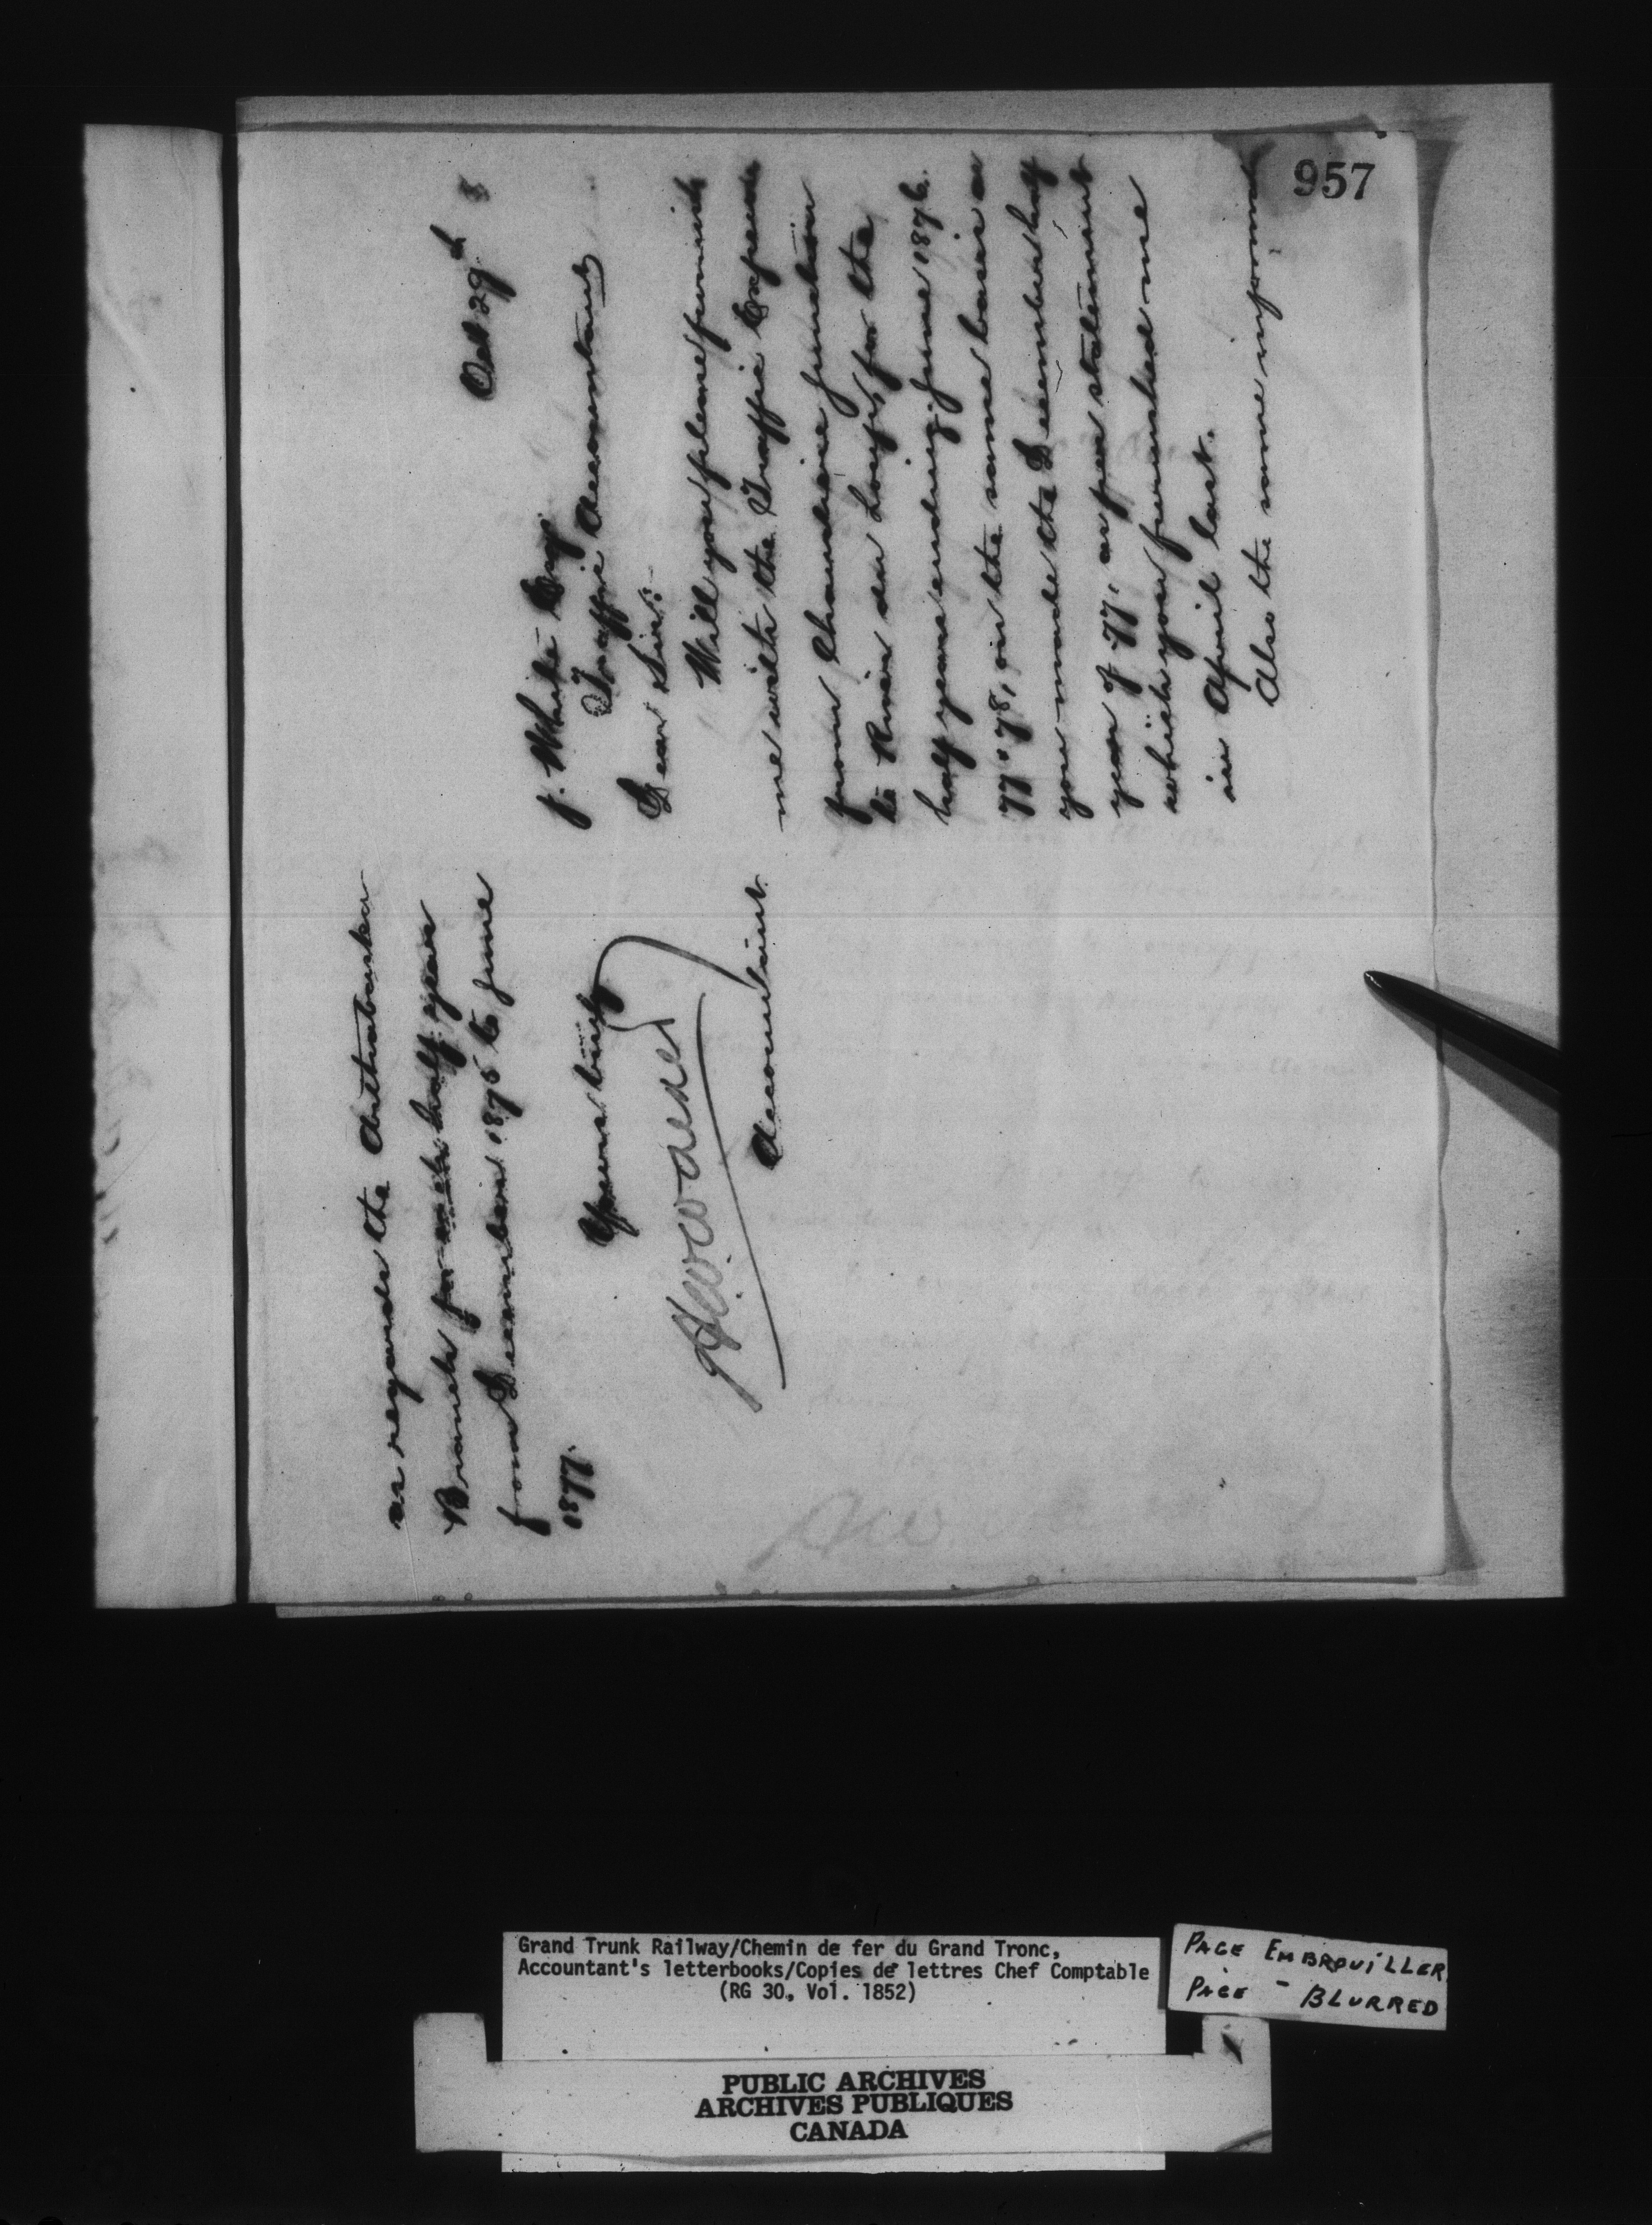 957
Oct 29th 8
J. White Esq
Traffic Accountant
Dear Sir:-
Will you please furnish
me with the Traffic Expenses
from Chaudiere Junction
to Riviere du Loup, for the
half years ending June 1876.
77 & 78, on the same basis as
you made the December half
year of 77, as per statement
which you furnished me
in April last.
Also the same information
as regards the Arthabaska
Branch for each half year
from December 1875 to June
1877.
Yours truly
Accountant.
Grand Trunk Railway/Chemin de fer du Grand Tronc,
Accountant's letterbooks/Copies de lettres Chef Comptable
(RG 30, Vol. 1852)
PAGE EMBROUILLER
PAGE - BLURRED
PUBLIC ARCHIVES
ARCHIVES PUBLIQUES
CANADA